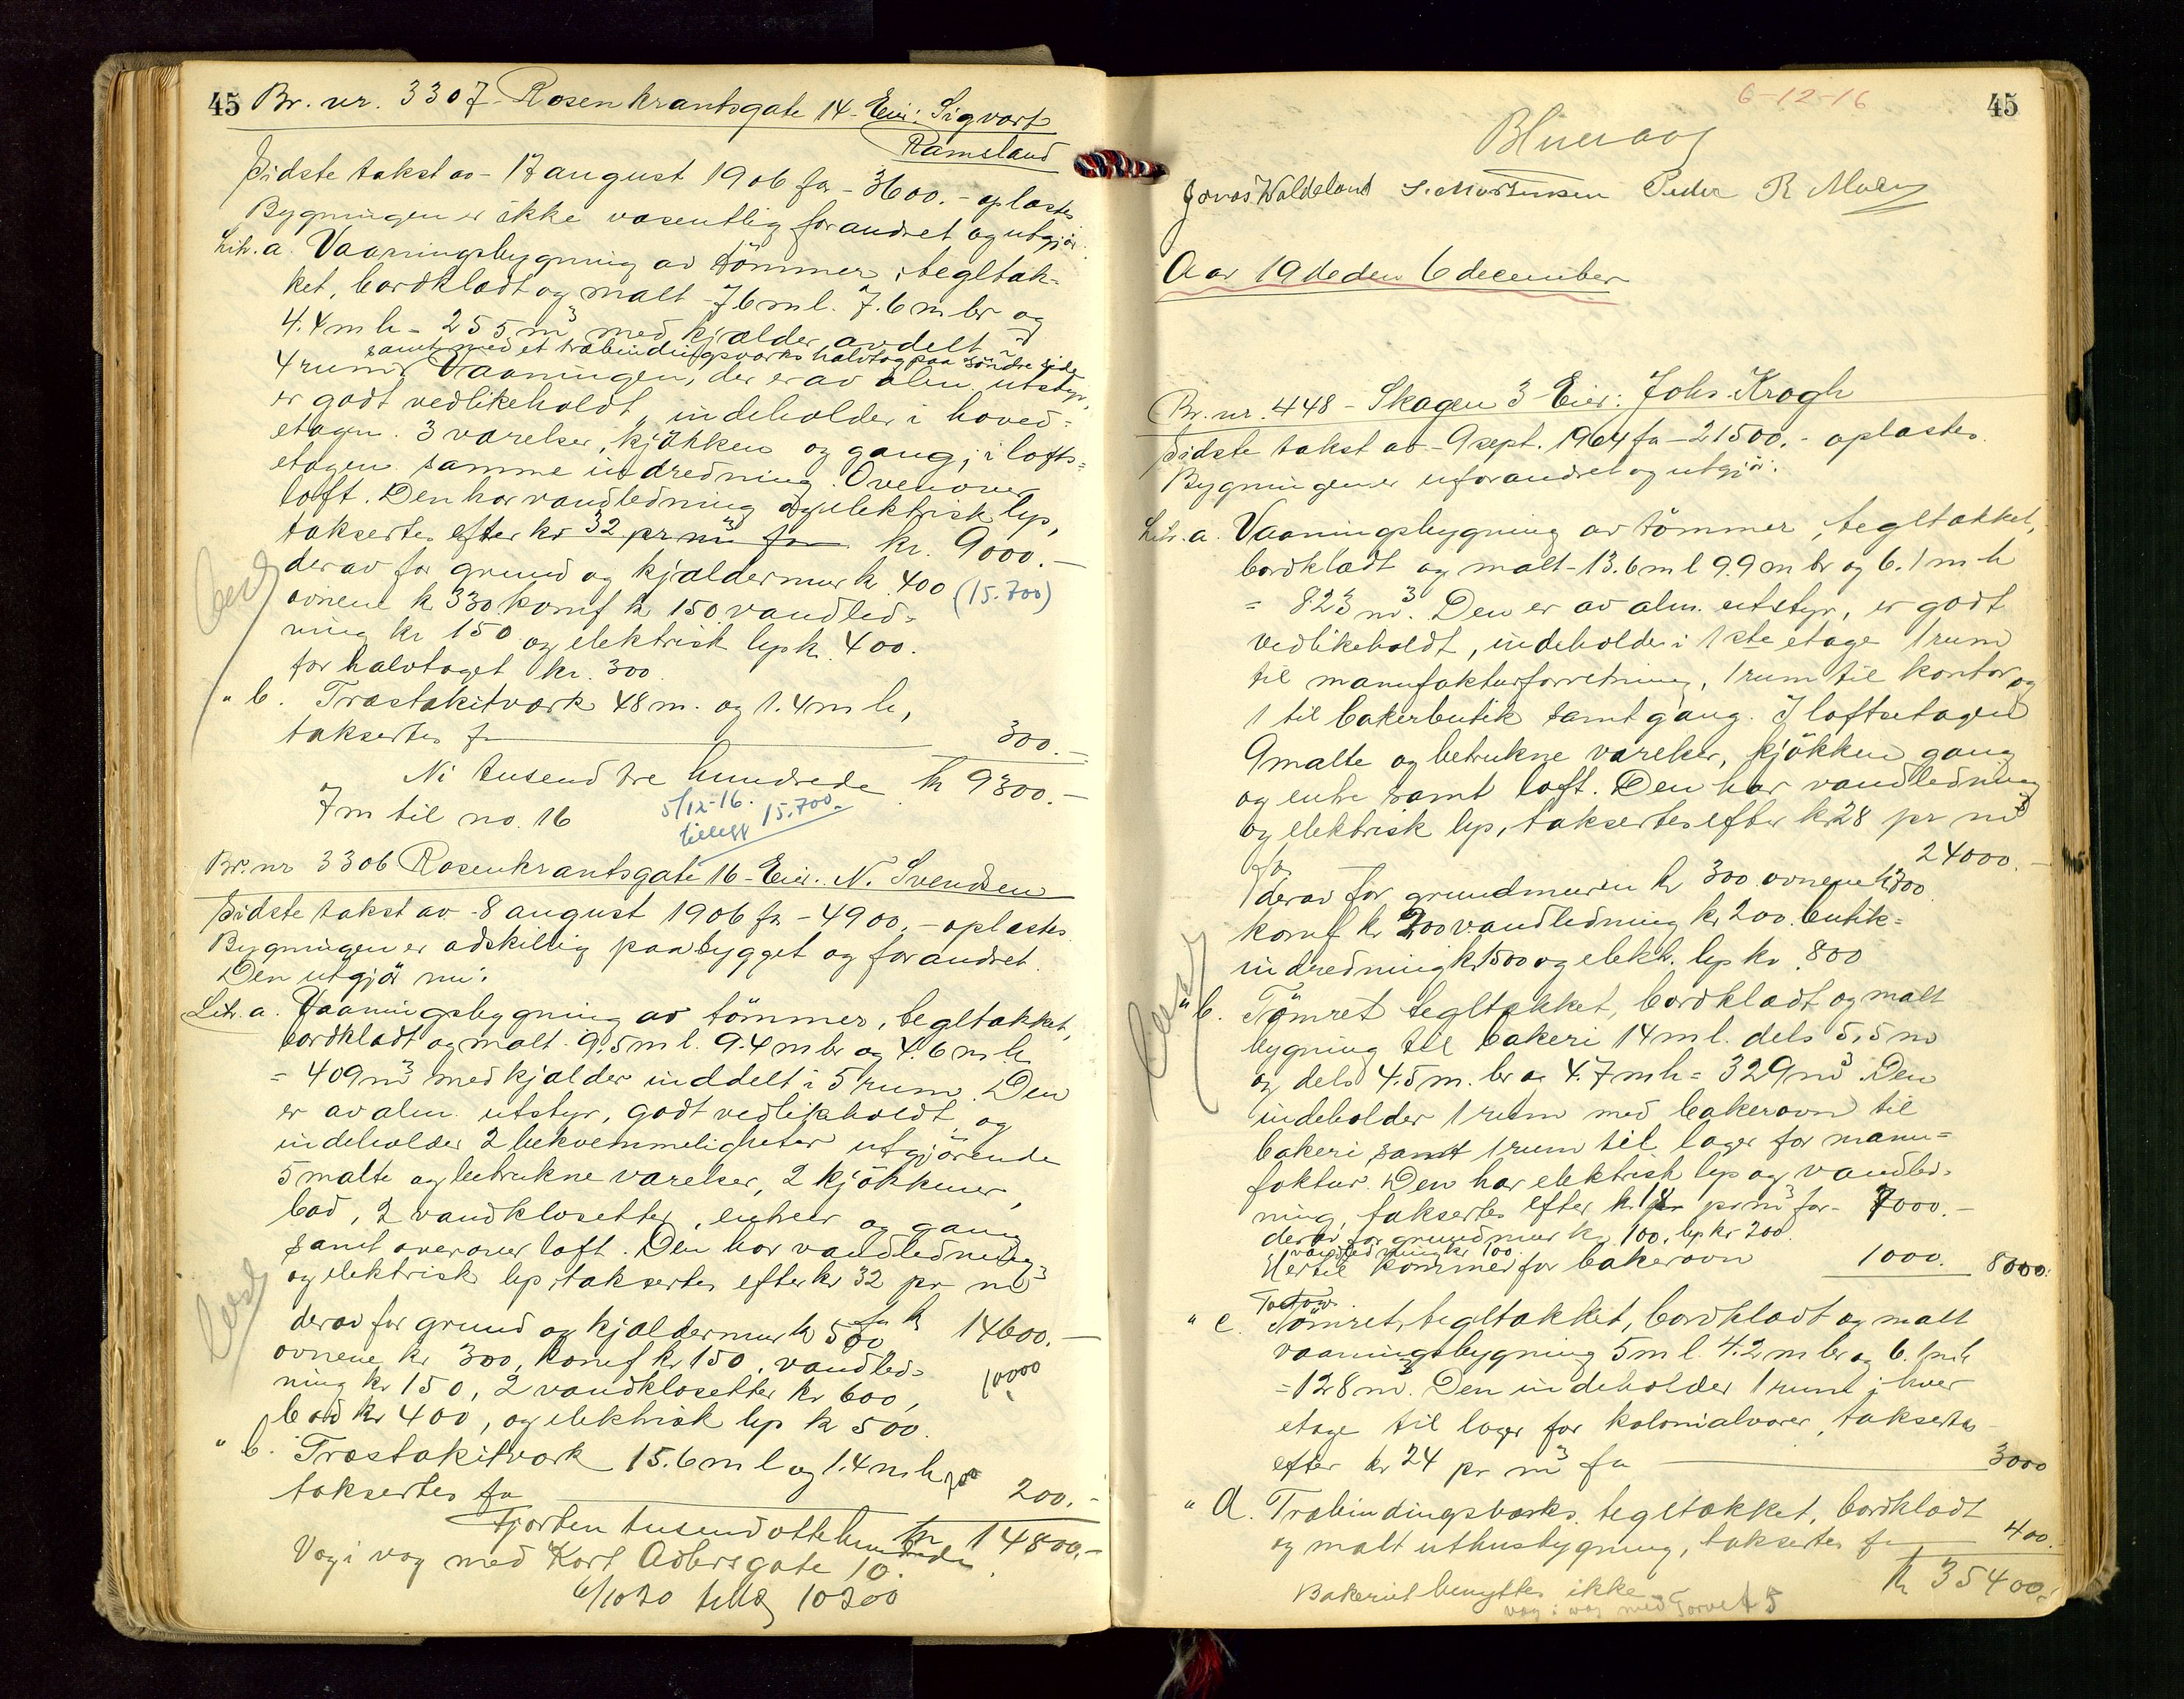 45 Br. nr. 3307 - Rosenkrantsgate 14 - Eier: Sigvart
Rameland
Sidste takst av - 17 august 1906 for - 3600. - oplæstes
Bygningen er ikke væsentlig forandret og utgjör:
Litr. a. Vaaningsbygning av tömmer, tegltæk-
ket, bordklædt og malt - 7.6 m l. 7.6 m br og
4.4 m h = 255 m³ med kjælder avdelt i
samt med et træbindingsverks halvtag paa söndre side
4 rum. Vaaningen, der er av alm. utstyr,
er godt vedlikeholdt, indeholder i hoved-
etagen 3 værelser, kjökken og gang; i lofts-
etagen samme indredning. Ovenover
loft. Den har vandledning og elektrisk lys,
taksertes efter kr 32 pr m³ for kr. 9000.-
derav for grund og kjældermur kr. 400 (15.700)
ovnene kr 330 komf kr 150 vandled-
ning kr 150 og elektrisk lys kr. 400.
for halvtaget kr. 300.
" b. Træstakitværk 48 m. og 1.4 m h,
taksertes for 300.-
Ni tusend tre hundrede kr 9300.-
7 m til no. 16 5/12-16. 15.700.
tillegg
Br. nr 3306 Rosenkrantsgate 16 - Eier: N. Svendsen
Sidste takst av - 8 august 1906 for - 4900. - oplæstes
Bygningen er adskillig paabygget og forandret.
Den utgjör nu:
Litr. a. Vaaningsbygning av tömmer, tegltækket,
bordklædt og malt - 9.5 m l. 9.4 m br og 4.6 m h
= 409 m³ med kjælder inddelt i 5 rum. Den
er av alm. utstyr, godt vedlikeholdt, og
indeholder 2 bekvemmeligheter utgjörende
5 malte og betrukne værelser, 2 kjökkener,
bad, 2 vandklosetter, entreer og gang
samt ovenover loft. Den har vandledning
og elektrisk lys, taksertes efter kr 32 pr m³
for kr 14600.-
derav for grund og kjældermur kr 500
ovnene kr 300, komf kr 150, vandled- 10000
ning kr 150, 2 vandklosetter kr 600,
bad kr 400, og elektrisk lys kr 500.
" b. Træstakitværk 15.6 m l og 1.4 m h
taksertes for 200 200.-
Fjorten tusend ottehundrede kr 14800.-
Væg i væg med Kort Adlersgate 10.
6/10 20 tillæg 10200
6-12-16 45
Jonas Waldeland S. Mortensen Peder R Maley
Aar 19 de den 6 december
Br. nr. 448 - Skagen 3 - Eier: Johs. Krogh
Sidste takst av - 9 sept. 1904 for - 21500. - oplæstes.
Bygningen er uforandret og utgjör:
Litr. a. Vaaningsbygning av tömmer, tegltækket,
bordklædt og malt - 13.6 m l 9.9 m br og 6.1 m h
= 823 m³. Den er av alm. utstyr, er godt
vedlikeholdt, indeholder i 1ste etage 1 rum
til manufakturforretning, 1 rum til kontor og
1 til bakerbutik samt gang. I loftsetagen
9 malte og betrukne værelser, kjökken gang
og entre samt loft. Den har vandledning
og elektrisk lys, taksertes efter kr 28 pr m³
for 24000.-
derav for grundmuren kr 300 ovnene kr 300
komf kr 200 vandledning kr 200. butik-
indredning kr 1500 og elektr. lys kr 800
" b. Tömret tegltækket, bordklædt og malt
bygning til bakeri 14 m l. dels 5,5 m
og dels 4.5 m. br og 4.7 m h = 329 m³. Den
indeholder 1 rum med bakerovn til
bakeri samt 1 rum til lager for manu-
faktur. Den har elektrisk lys og vandled-
ning, taksertes efter kr 18 pr m³ for - 7000.-
derav for grundmur kr 100, lys kr 200.
vandledning kr 100.
Hertil kommer for bakerovn 1000. 8000.
" c. Tömret, tegltækket, bordklædt og malt
vaaningsbygning 5 m l. 4.2 m br og 6.1 m h
= 128 m³. Den indeholder 1 rum i hver
etage til lager for kolonialvarer, taksertes
efter kr 24 pr m³ for 3000
" d. Træbindingsværks, tegltækket, bordklædt
og malt uthusbygning, taksertes for 400.
kr 35400.-
Bakeriet benyttes ikke
væg i væg med Torvet 5